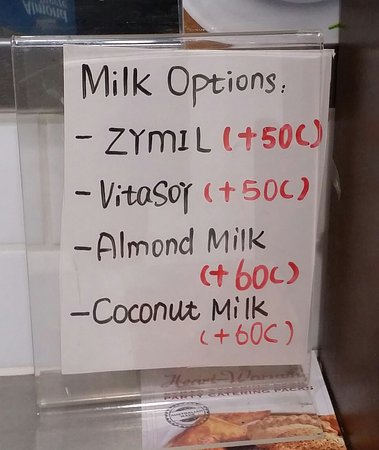 Milk Options:
- ZYMIL (+50C)
- VitaSoy (+50C)
- Almond Milk
(+60C)
- Coconut Milk
(+60C)
PARTY CATERING PACKS